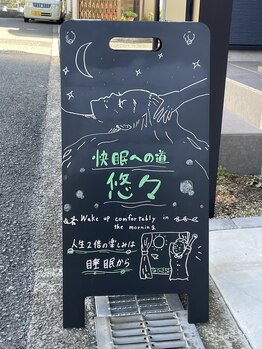 快眠への道
悠々
Wake up comfortably in
the morning.
人生2倍の楽しみは
睡眠から